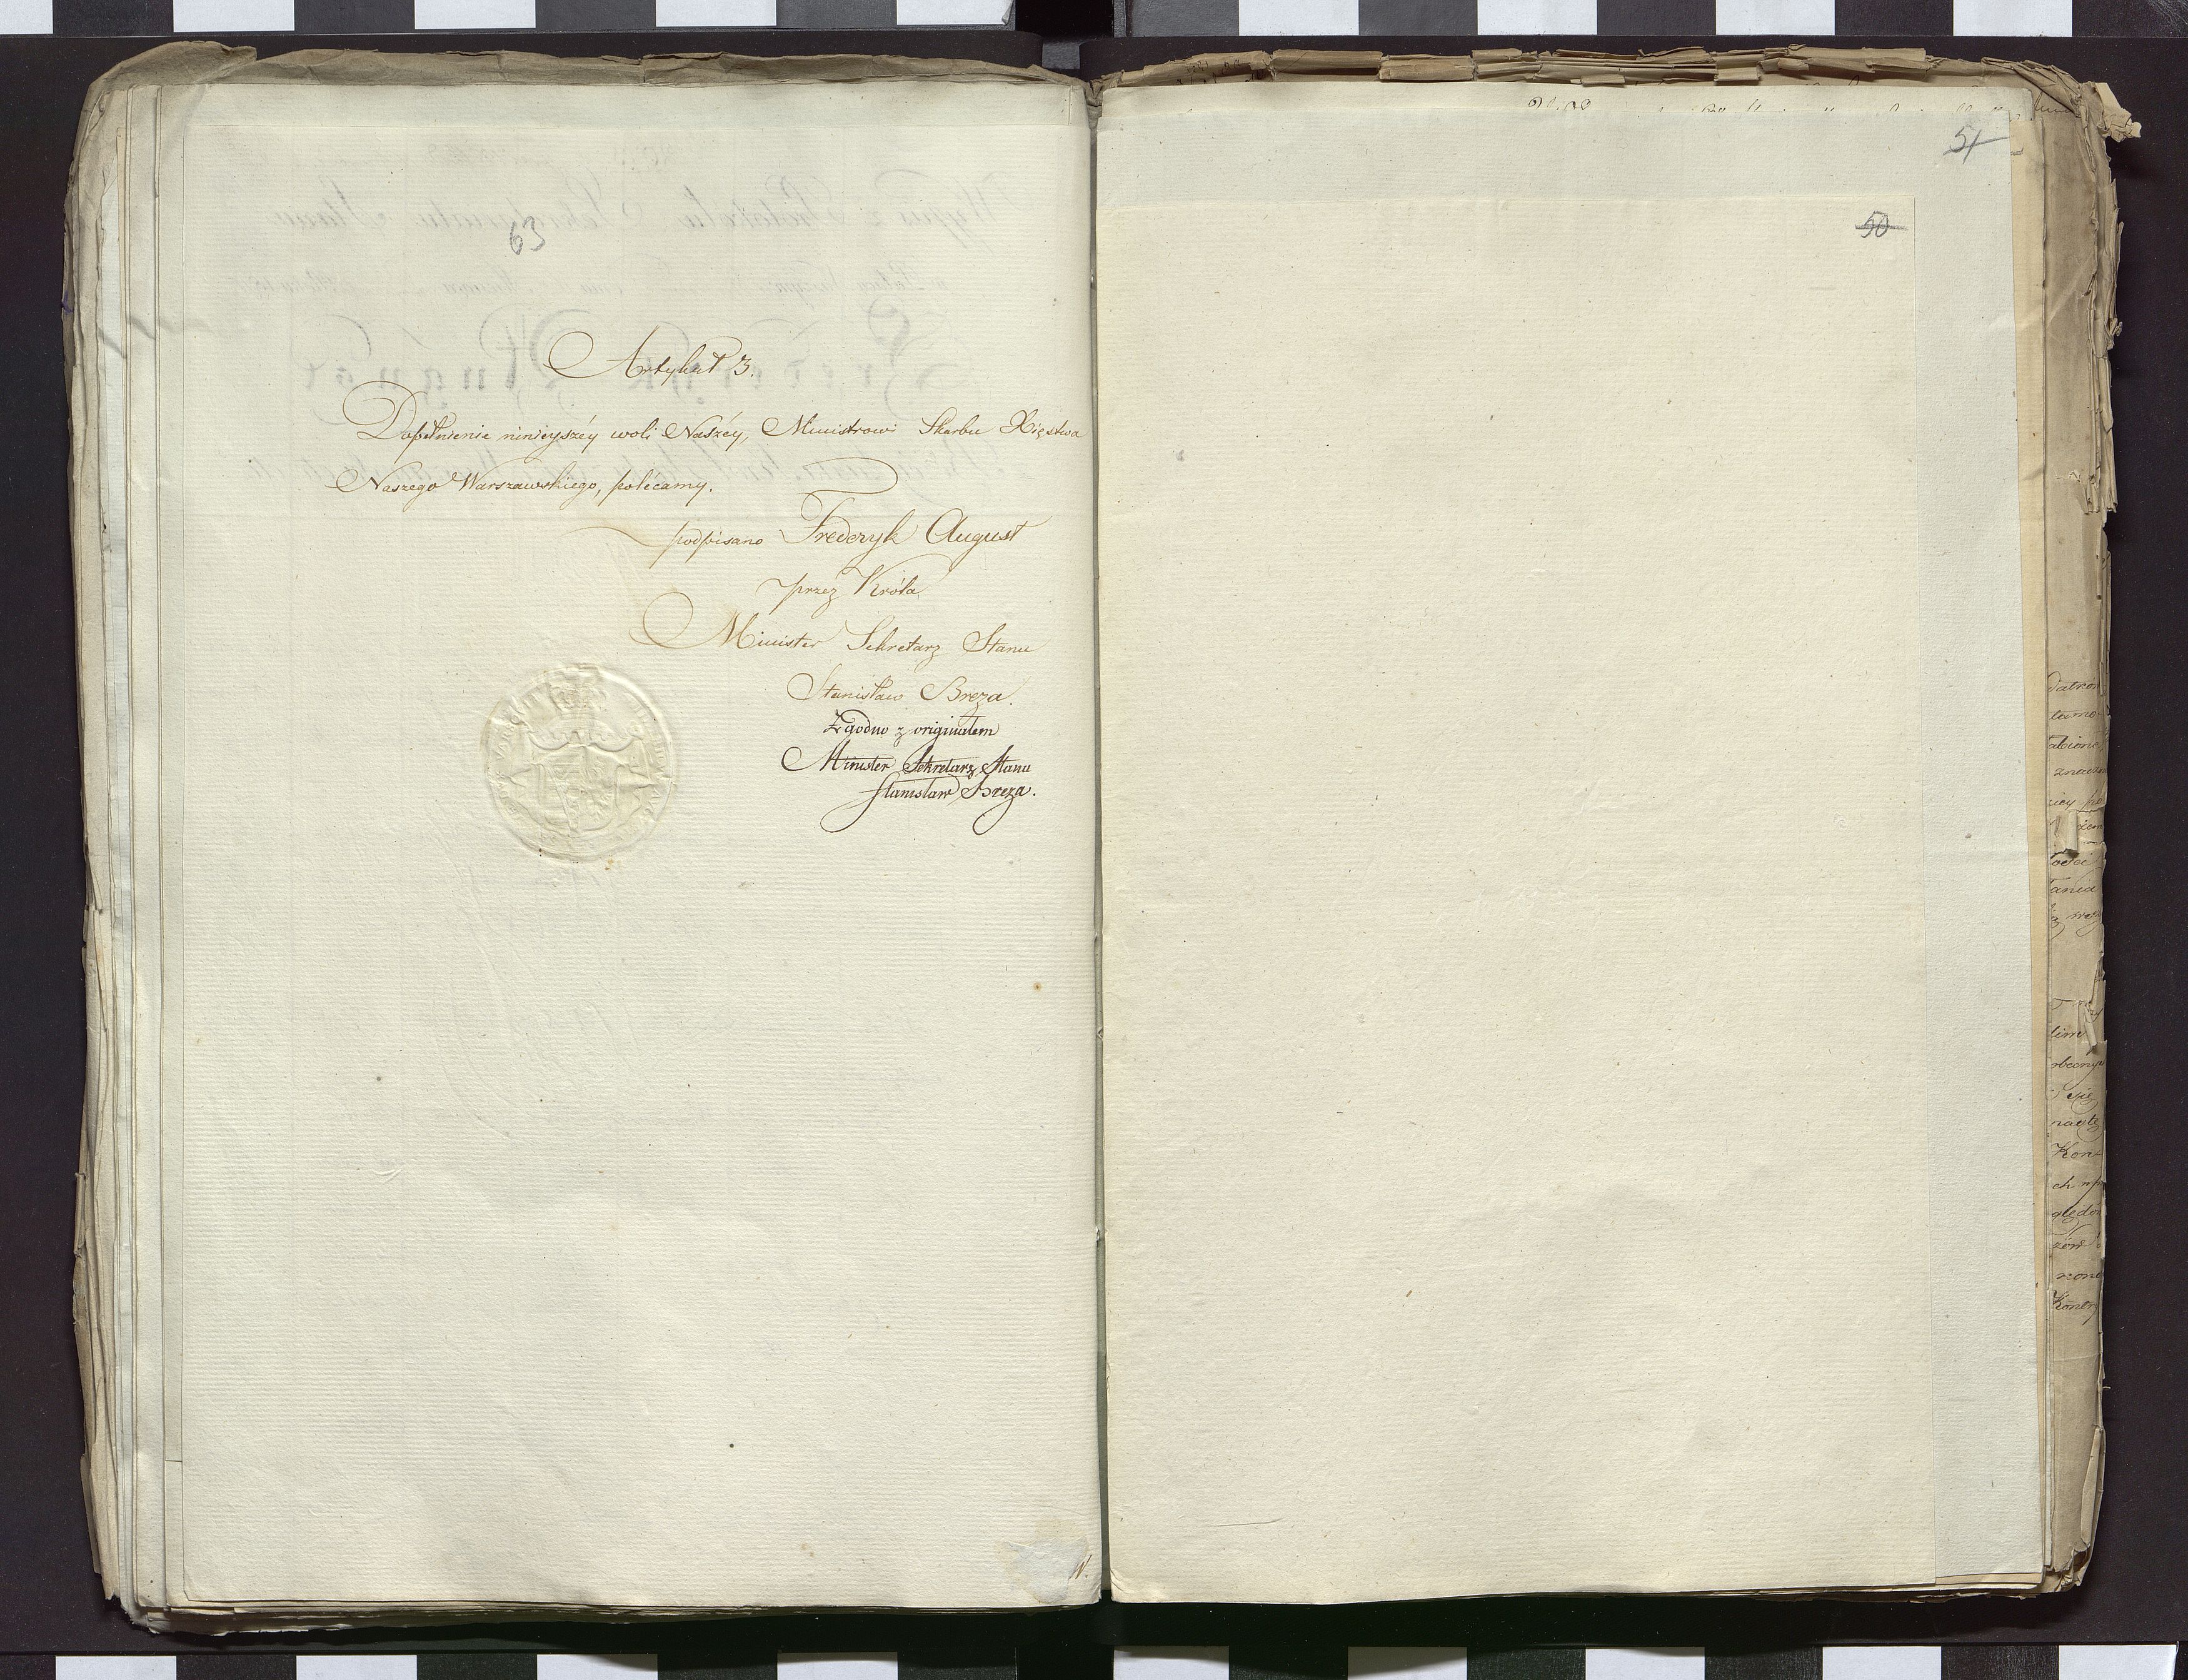 63
Artykuł 3.
Dopełnienie ninieyszéy woli Naszéy, Ministrowi Skarbu Xięstwa
Naszego Warszawskiego, polécamy.
podpisano Frederyk August
przez Króla
Minister Sekretarz Stanu
Stanisław Breza.
Zgodno z originałem
Minister Sekretarz Stanu
Stanisław Breza.
51
50